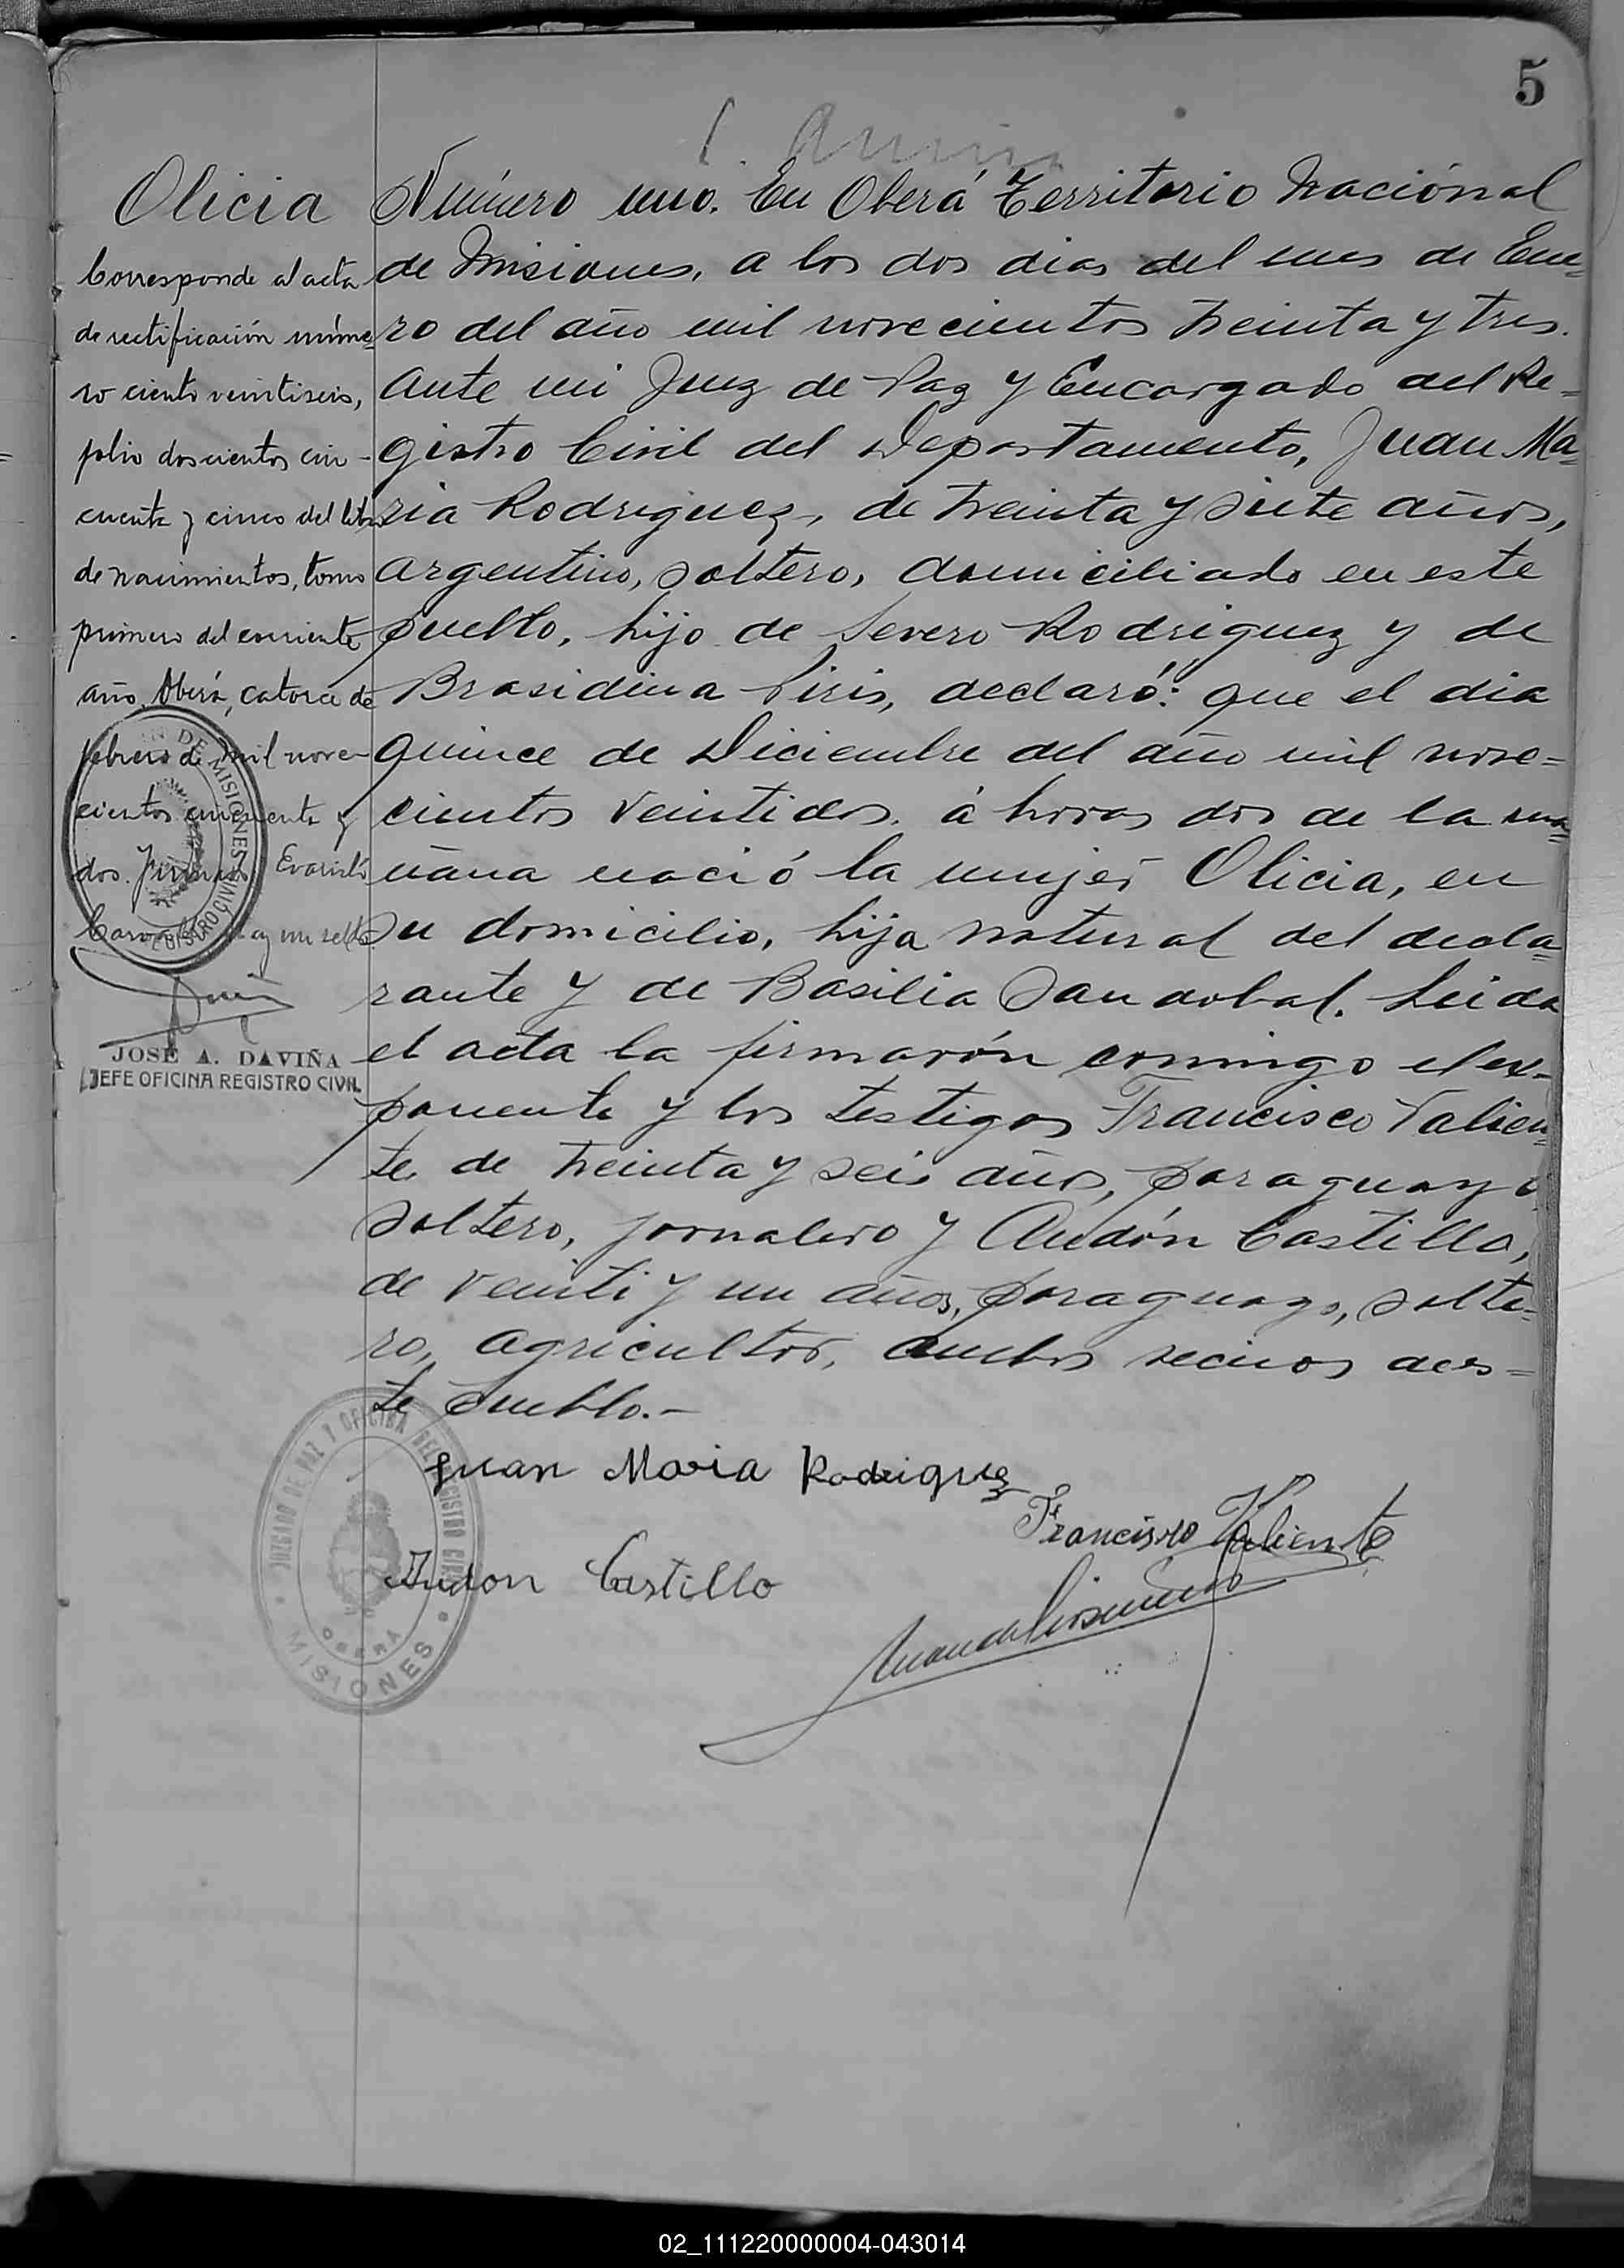 5
Olicia
Corresponde al acta
de rectificación núme-
ro ciento veintiseis,
folio doscientos cin-
cuenta y cinco del libro
de nacimientos, tomo
primero del corriente
año. Oberá, catorce de
febrero de mil nove-
cientos cincuenta y
dos. Evaristo
hay un sello
JOSE A. DAVIÑA
JEFE OFICINA REGISTRO CIVIL
Número uno. En Oberá Territorio Nacional
de Misiones, a los dos dias del mes de Ene=
ro del año mil novecientos treinta y tres.
Ante mi Juez de Paz y Encargado del Re-
gistro Civil del Departamento, Juan Ma=
ria Rodriguez, de treinta y siete años,
argentino, soltero, domiciliado en este
pueblo, hijo de Severo Rodriguez y de
Brasidina Piris, declaró: que el dia
quince de Diciembre del año mil nove=
cientos veintidos. á horas dos de la ma=
ñana nació la mujer Olicia, en
su domicilio, hija natural del decla=
rante y de Basilia Sandobal. Leida
el acta la firmarón conmigo el ex-
ponente y los testigos Francisco Valien=
te, de treinta y seis años, paraguayo
soltero, jornalero y Audón Castillo,
de veinti y un años, paraguayo, solte-
ro, agricultor, ambos vecinos des=
te pueblo.-
Juan Maria Rodriguez
Francisco Valiente
Audon Castillo
JUZGADO DE PAZ Y OFICINA DEL REGISTRO CIVIL
OBERÁ
MISIONES
02_111220000004-043014